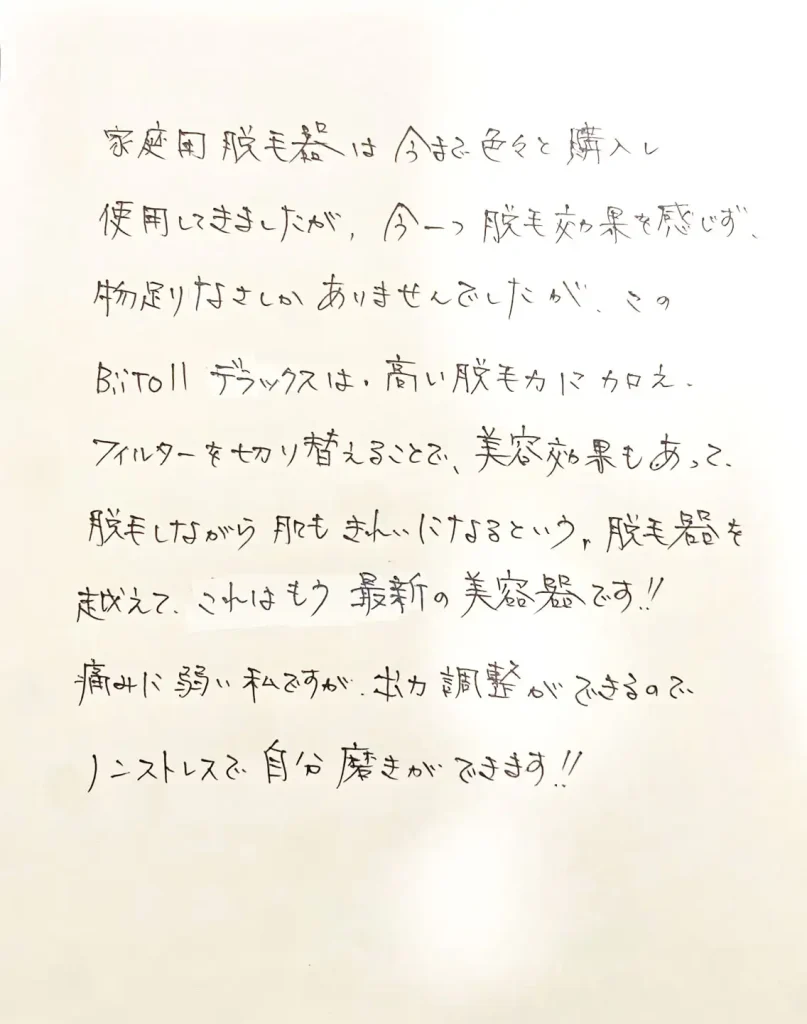 家庭用脱毛器は今まで色々と購入し
使用してきましたが、今一つ脱毛効果を感じず、
物足りなさしかありませんでしたが、この
BiiTo11 デラックスは、高い脱毛力に加え、
フィルターを切り替えることで、美容効果もあって、
脱毛しながら肌もきれいになるという、脱毛器を
越えて、これはもう最新の美容器です!!
痛みに弱い私ですが、出力調整ができるので
ノンストレスで自分磨きができます!!